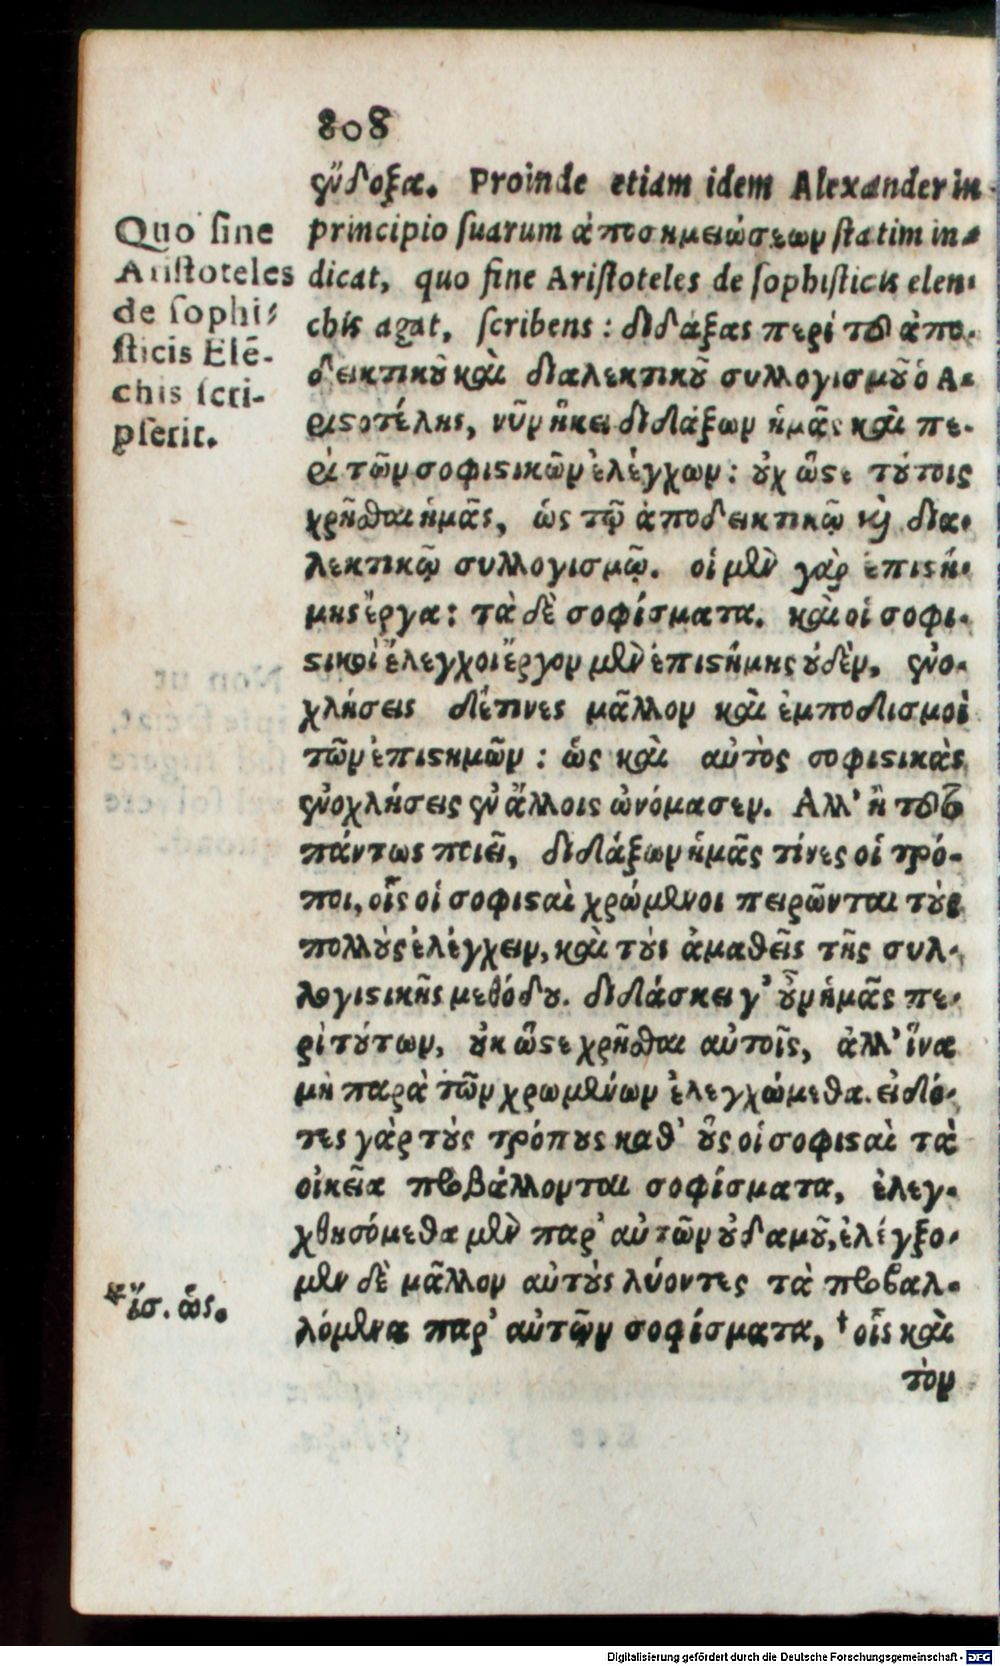 808
ἔνδοξα. Proinde etiam idem Alexander in
principio suarum ἀποσημειώσεων statim in-
dicat, quo fine Aristoteles de sophisticis elen-
chis agat, scribens: διδάξας περὶ τοῦ ἀπο-
δεικτικοῦ καὶ διαλεκτικοῦ συλλογισμοῦ ὁ Ἀ-
ριστοτέλης, νῦν ἥκει διδάξων ἡμᾶς καὶ πε-
ρὶ τῶν σοφιστικῶν ἐλέγχων: οὐχ ὥστε τούτοις
χρῆσθαι ἡμᾶς, ὡς τῷ ἀποδεικτικῷ καὶ δια-
λεκτικῷ συλλογισμῷ. οἱ μὲν γὰρ ἐπιστή-
μης ἔργα: τὰ δὲ σοφίσματα. καὶ οἱ σοφι-
στικοὶ ἔλεγχοι ἔργον μὲν ἐπιστήμης οὐδὲν, ἐνο-
χλήσεις δέ τινες μᾶλλον καὶ ἐμποδισμοὶ
τῶν ἐπιστημῶν: ὡς καὶ αὐτὸς σοφιστικὰς
ἐνοχλήσεις ἐν ἄλλοις ὠνόμασεν. Ἀλλ' ἢ τοῦτο
πάντως ποιεῖ, διδάξων ἡμᾶς τίνες οἱ τρό-
ποι, οἷς οἱ σοφισταὶ χρώμενοι πειρῶνται τοὺς
πολλοὺς ἐλέγχειν, καὶ τοὺς ἀμαθεῖς τῆς συλ-
λογιστικῆς μεθόδου. διδάσκει γ' οὖν ἡμᾶς πε-
ρὶ τούτων, οὐκ ὥστε χρῆσθαι αὐτοῖς, ἀλλ' ἵνα
μὴ παρὰ τῶν χρωμένων ἐλεγχώμεθα. εἰδό-
τες γὰρ τοὺς τρόπους καθ' οὓς οἱ σοφισταὶ τὰ
οἰκεῖα προβάλλονται σοφίσματα, ἐλεγ-
χθησόμεθα μὲν παρ' αὐτῶν οὐδαμοῦ, ἐλέγξο-
μεν δὲ μᾶλλον αὐτοὺς λύοντες τὰ προβαλ-
λόμενα παρ' αὐτῶν σοφίσματα, † οἷς καὶ
τὸν
Quo fine
Aristoteles
de sophi-
sticis Elē-
chis scri-
pserit.
* ἴσ. ὥς.
Digitalisierung gefördert durch die Deutsche Forschungsgemeinschaft - DFG